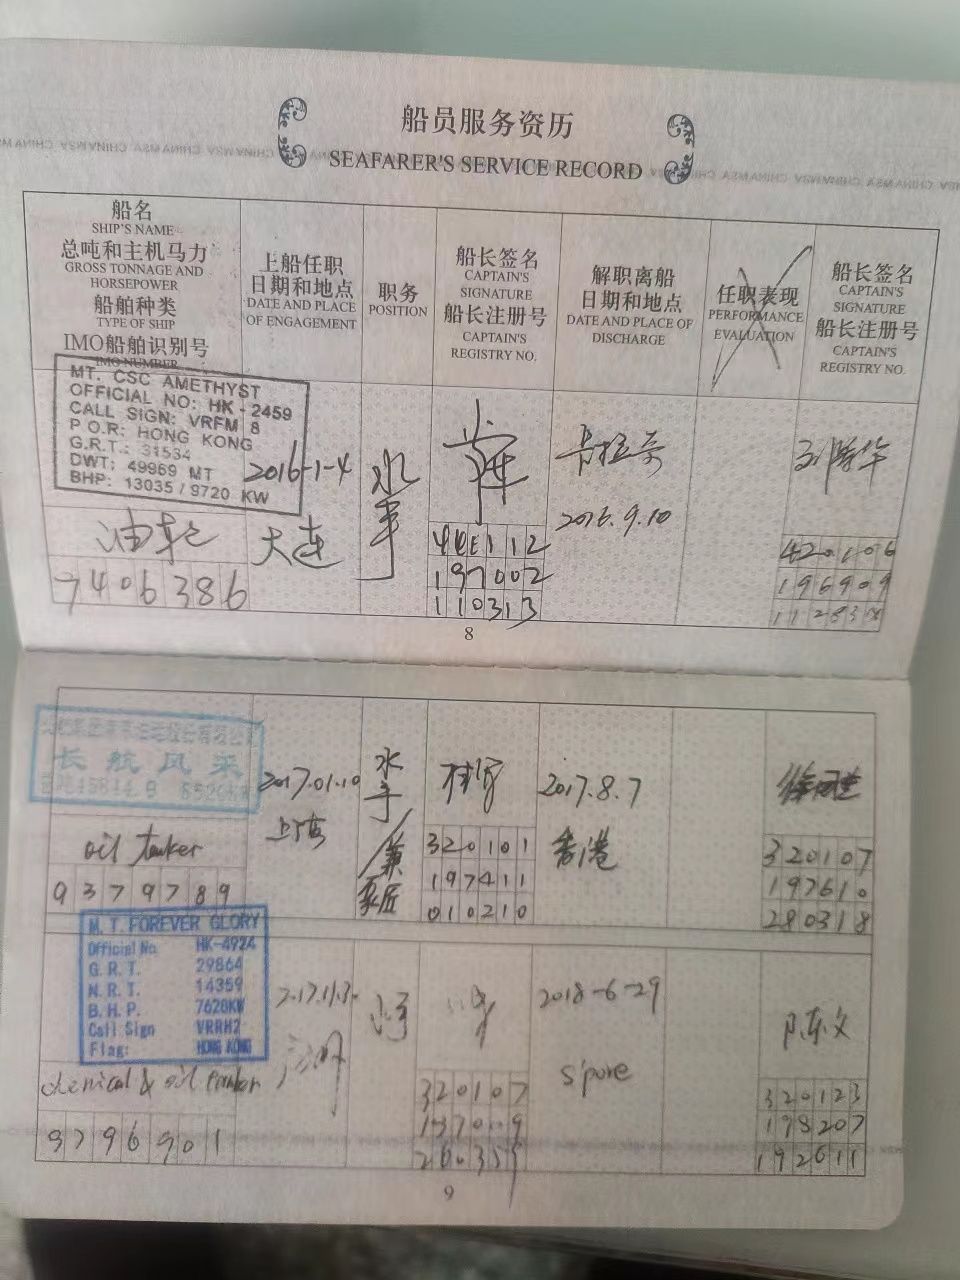 船员服务资历
SEAFARER'S SERVICE RECORD
船名
SHIP'S NAME
总吨和主机马力
GROSS TONNAGE AND
HORSEPOWER
船舶种类
TYPE OF SHIP
IMO船舶识别号
IMO NUMBER
上船任职
日期和地点
DATE AND PLACE
OF ENGAGEMENT
职务
POSITION
船长签名
CAPTAIN'S
SIGNATURE
船长注册号
CAPTAIN'S
REGISTRY NO.
解职离船
日期和地点
DATE AND PLACE OF
DISCHARGE
任职表现
PERFORMANCE
EVALUATION
船长签名
CAPTAIN'S
SIGNATURE
船长注册号
CAPTAIN'S
REGISTRY NO.
MT. CSC AMETHYST
OFFICIAL NO: HK - 2459
CALL SIGN: VRFM 8
P.O.R: HONG KONG
G.R.T.: 31534
DWT: 49969 MT
BHP: 13035 / 9720 KW
油轮
7406386
2016-1-4
大连
水手
197002
110313
卡拉奇
2016.9.10
196909
8
长航风采
oil tanker
9379789
2017.01.10
上海
水手/兼泵匠
320101
197411
010210
2017.8.7
香港
320107
197610
280318
M.T. FOREVER GLORY
Official No. HK-4924
G.R.T. 29864
N.R.T. 14359
B.H.P. 7628KW
Call Sign VRRH2
Flag: HONG KONG
chemical & oil tanker
9796901
320107
2018-6-29
S'pore
320123
198207
192611
9